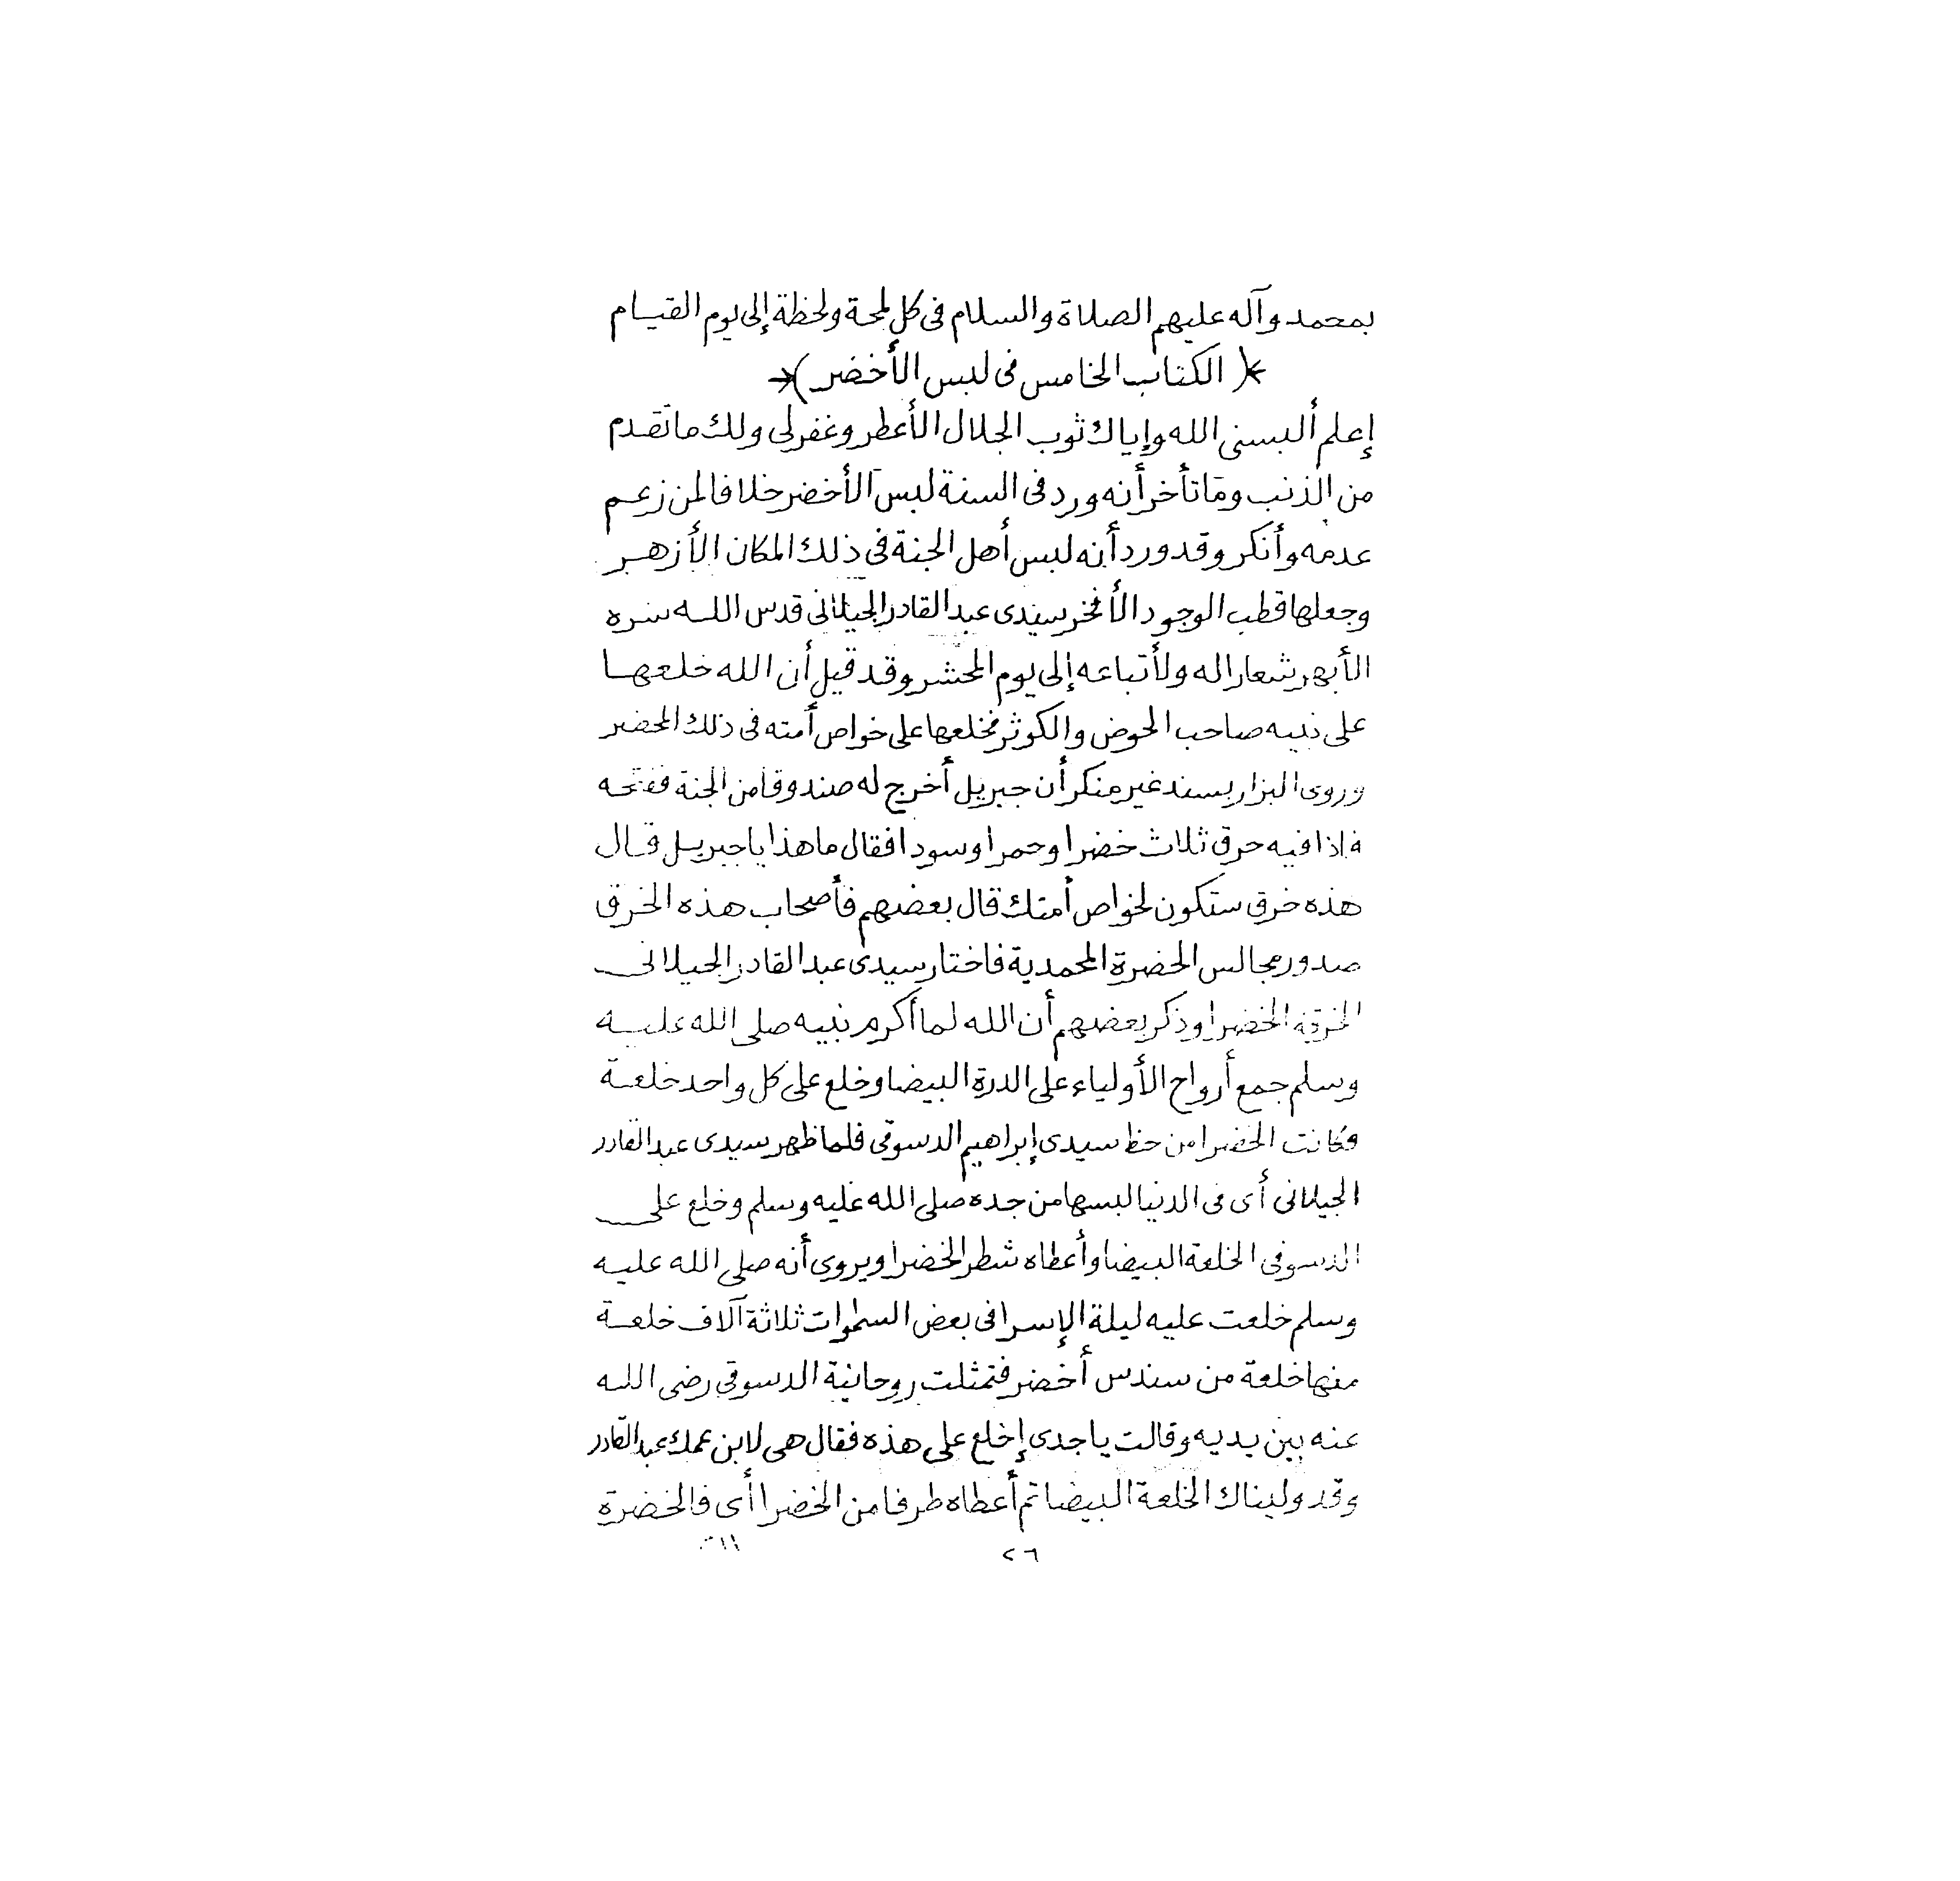 بمحمد وآله عليهم الصلاة والسلام فى كل لمحة ولحظة إلى يوم القيام
( الكتاب الخامس فى لبس الأخضر )
إعلم ألبسنى الله وإياك ثوب الجلال الأعطر وغفر لى ولك ما تقدم
من الذنب وما تأخر أنه ورد فى السنة لبس الأخضر خلافا لمن زعم
عدمه وأنكر وقد ورد أنه لبس أهل الجنة فى ذلك المكان الأزهر
وجعلها قطب الوجود الأفخر سيدى عبد القادر الجيلانى قدس الله سره
الأبهر شعارا له ولأتباعه إلى يوم المحشر وقد قيل أن الله خلعها
على نبيه صاحب الحوض والكوثر فخلعها على خواص أمته فى ذلك المحضر
وروى البزار بسند غير منكر أن جبريل أخرج له صندوقا من الجنة ففتحه
فإذا فيه حرق ثلاث خضرا وحمرا وسودا فقال ما هذا يا جبريل قال
هذه خرق ستكون لخواص أمتك قال بعضهم فأصحاب هذه الخرق
صدور مجالس الحضرة المحمدية فاختار سيدى عبد القادر الجيلانى
الخرقة الخضرا وذكر بعضهم أن الله لما أكرم نبيه صلى الله عليه
وسلم جمع أرواح الأولياء على الدرة البيضا وخلع على كل واحد خلعة
فكانت الخضرا من حظ سيدى إبراهيم الدسوقى فلما ظهر سيدى عبد القادر
الجيلانى أى فى الدنيا لبسها من جده صلى الله عليه وسلم وخلع على
الدسوقى الخلعة البيضا وأعطاه شطر الخضرا ويروى أنه صلى الله عليه
وسلم خلعت عليه ليلة الإسرا فى بعض السموات ثلاثة آلاف خلعة
منها خلعة من سندس أخضر فتمثلت روحانية الدسوقى رضى الله
عنه بين يديه وقالت يا جدى إخلع على هذه فقال هى لابن عمك عبد القادر
وقد وليناك الخلعة البيضا ثم أعطاه طرفا من الخضرا أى فالخضرة
٢٦